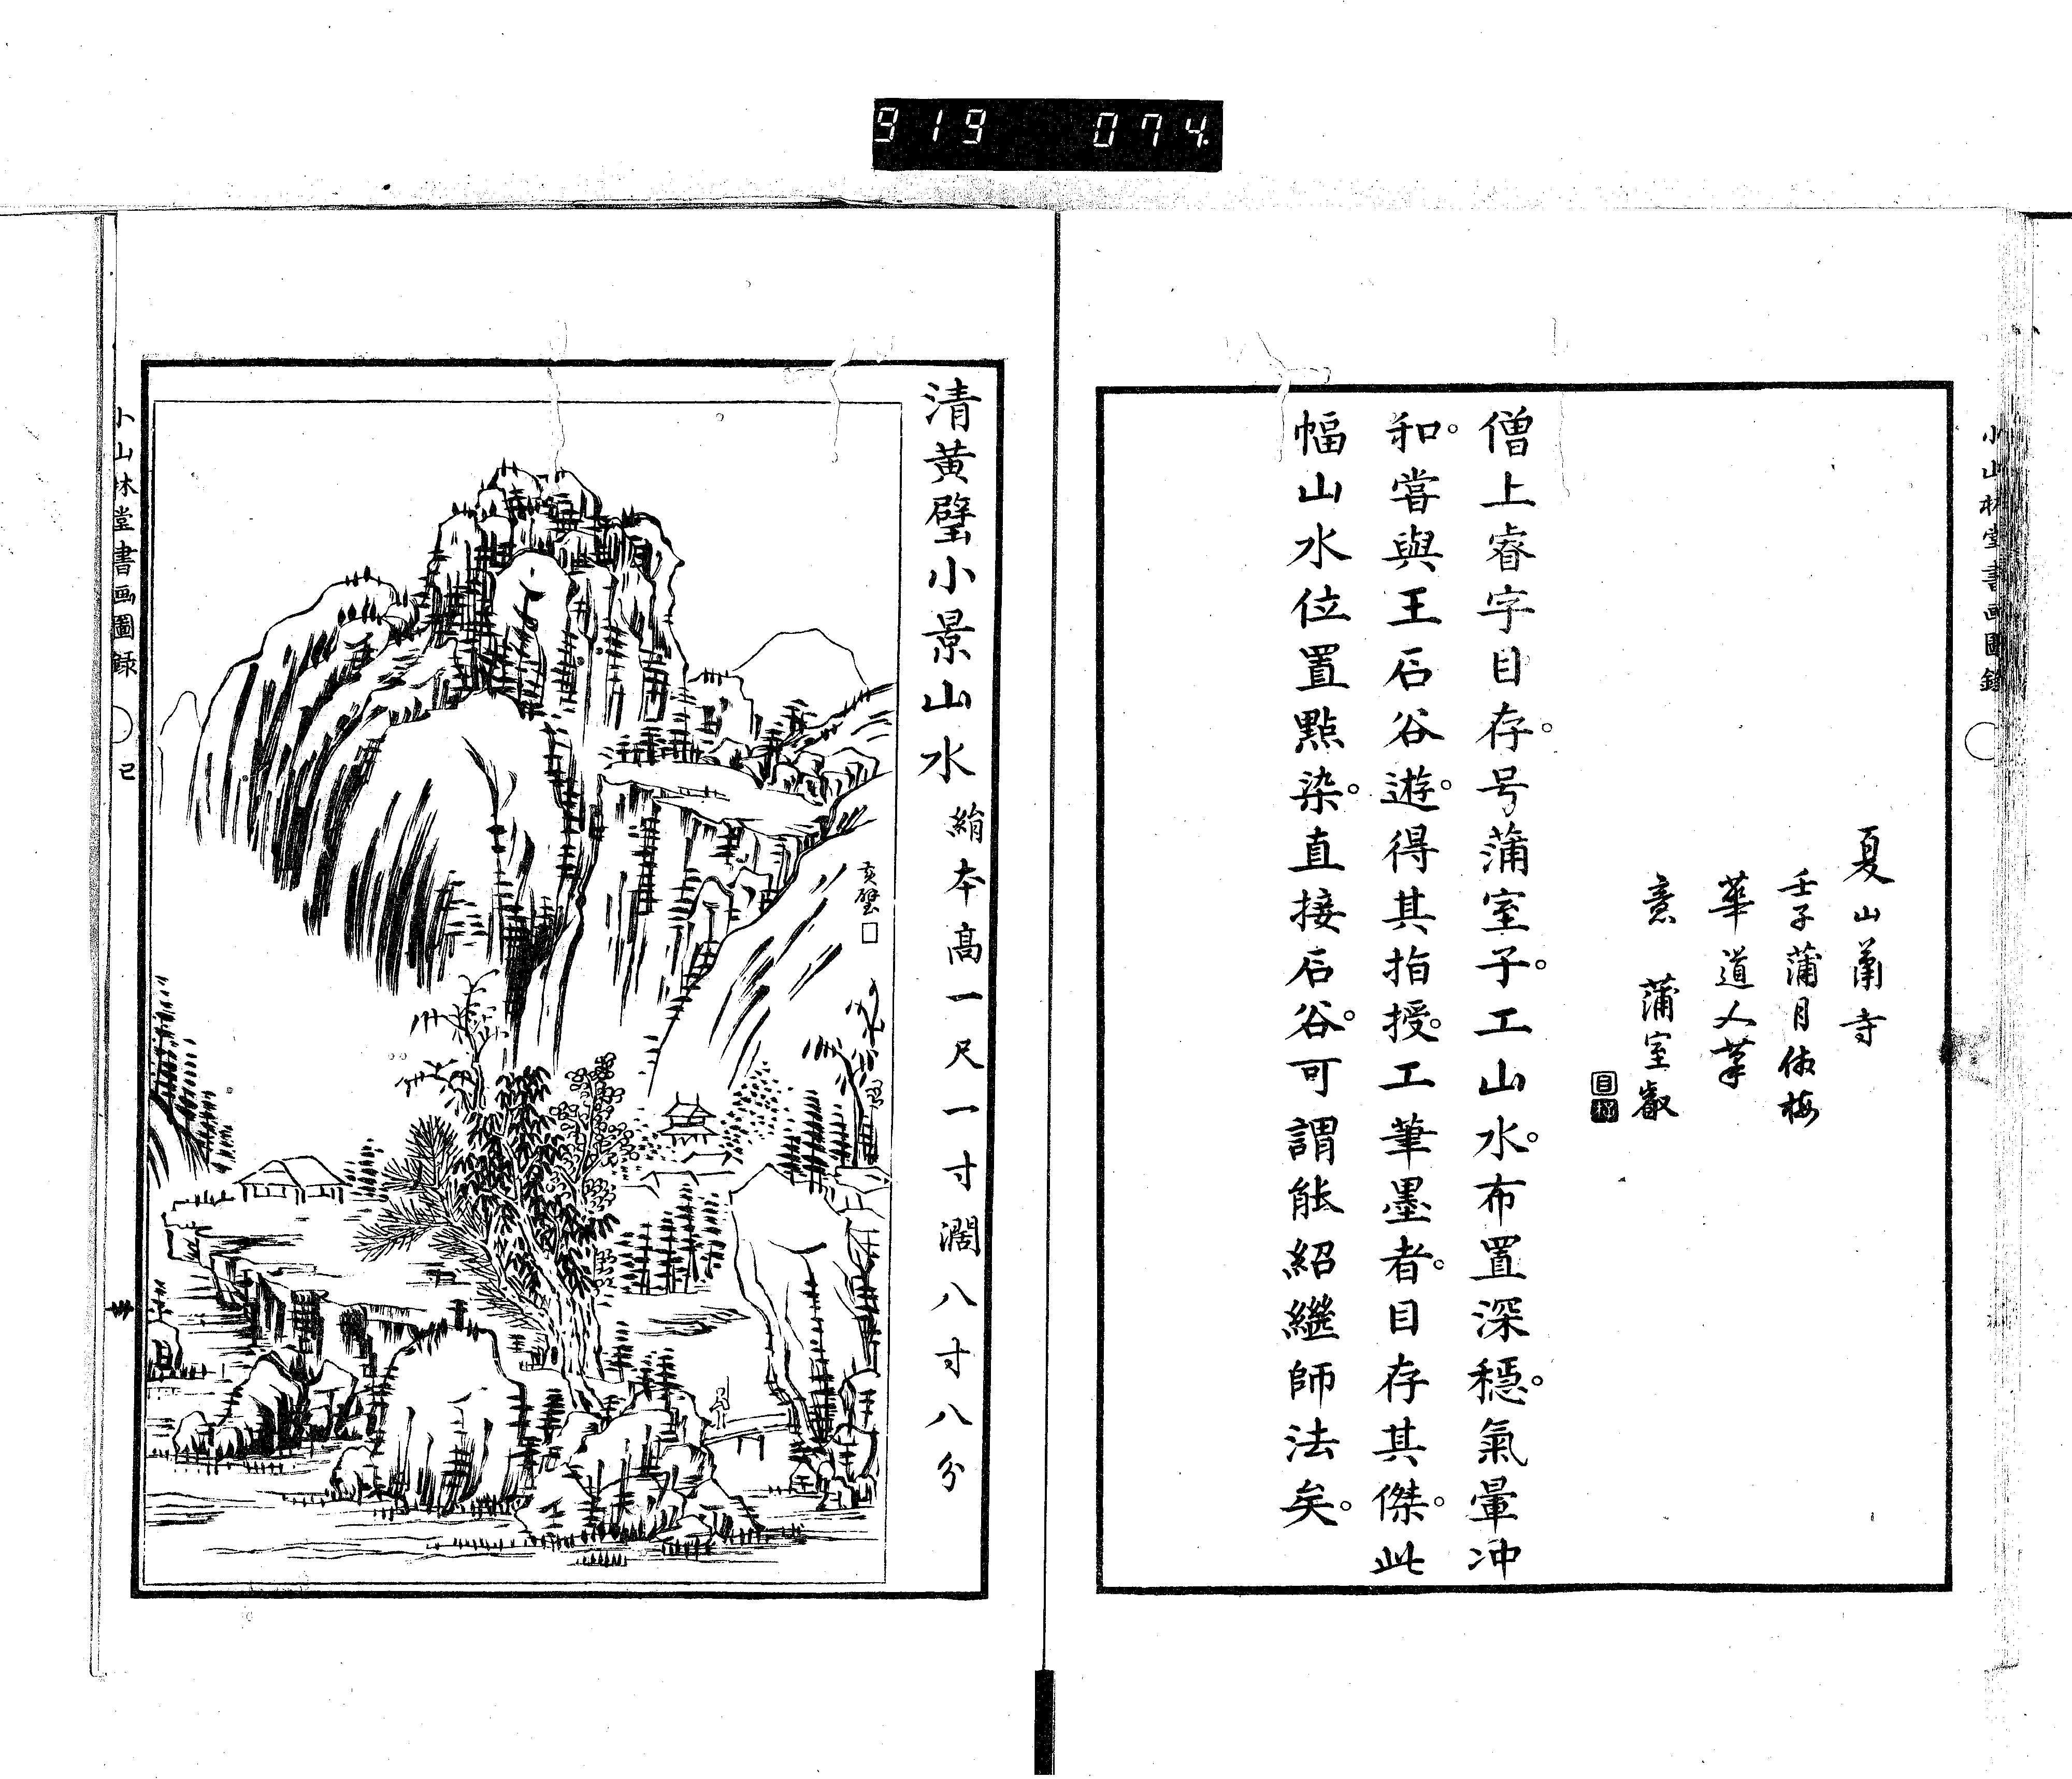 919 074
小山林堂書画圖録
夏山蕭寺
壬子蒲月倣梅
華道人筆
意 蒲室叡
目存
僧上睿字目存。号蒲室子。工山水。布置深穩。氣暈冲
和。嘗與王石谷遊。得其指授。工筆墨者。目存其傑。此
幅山水位置點染。直接石谷。可謂能紹繼師法矣。
清黄璧小景山水 絹本高一尺一寸濶八寸八分
黄璧
小山林堂書画圖録 己
卅